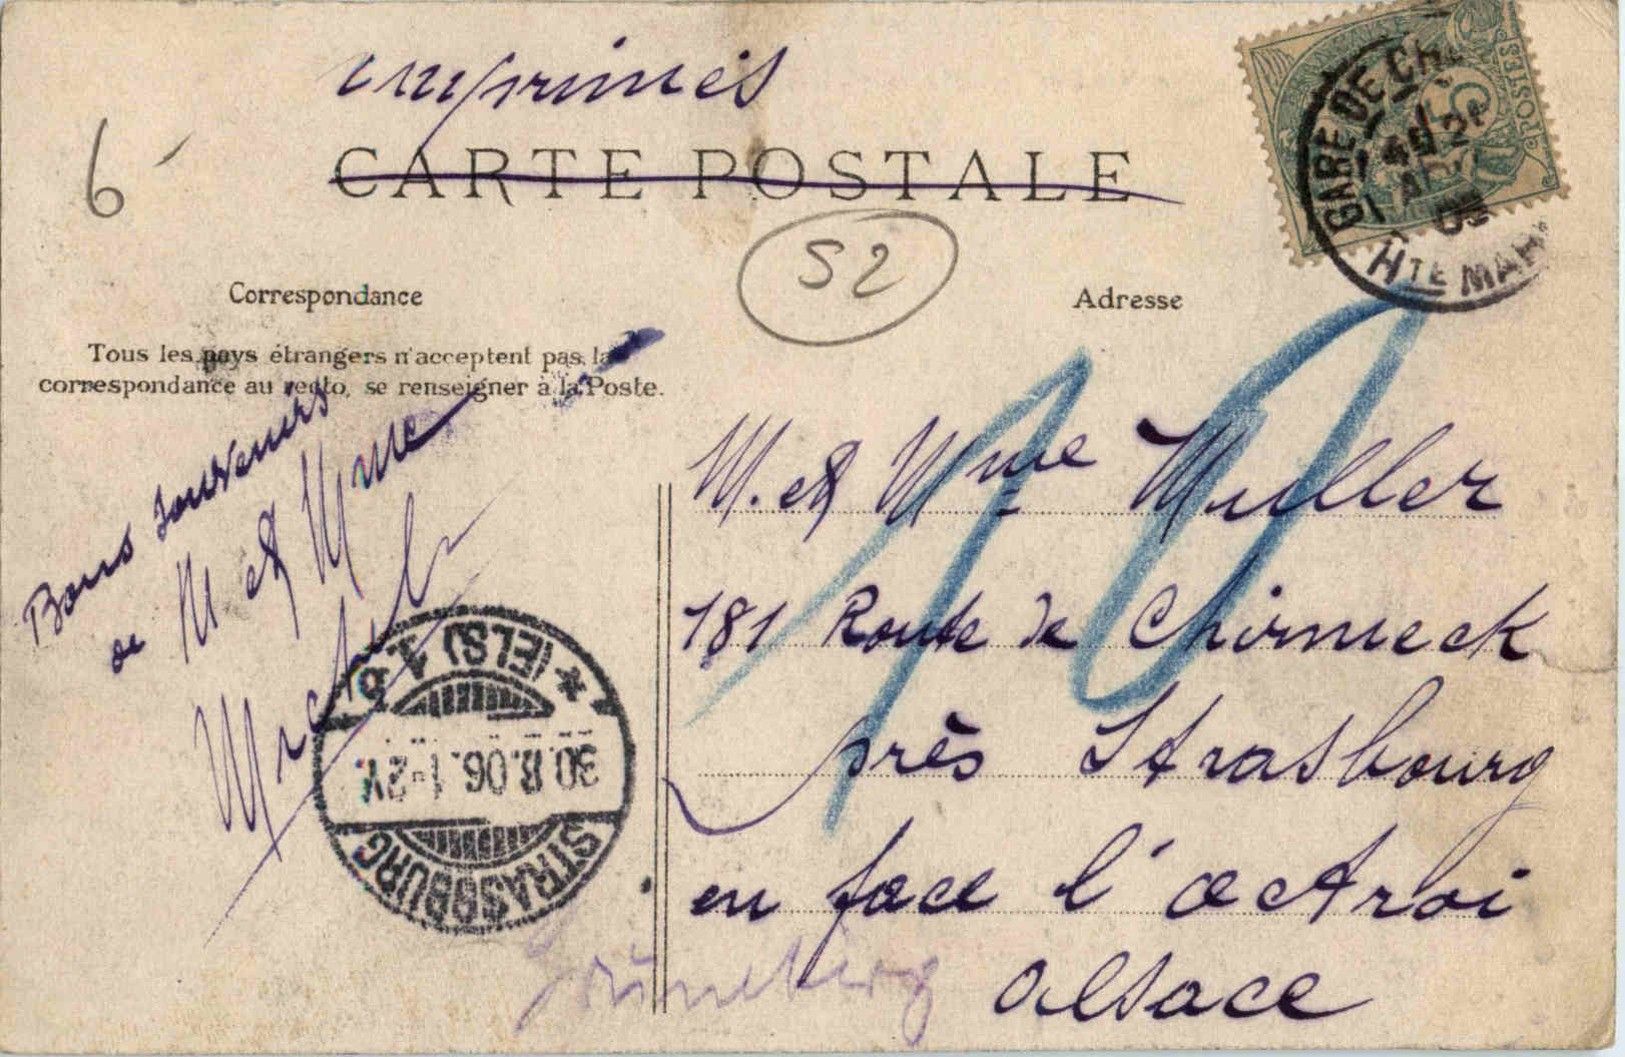 imprimés
CARTE POSTALE
6
52
POSTES
5
GARE DE CH
HTE MAR
Correspondance
Adresse
Tous les pays étrangers n'acceptent pas la
correspondance au recto, se renseigner à la Poste.
Bons souvenirs
de M et Mme
M. et Mme Muller
181 Route de Chirmeck
près Strasbourg
en face l'octroi
Alsace
STRASSBURG
30.8.06.1-2V.
* (ELS) 1. g
Grüneberg
10